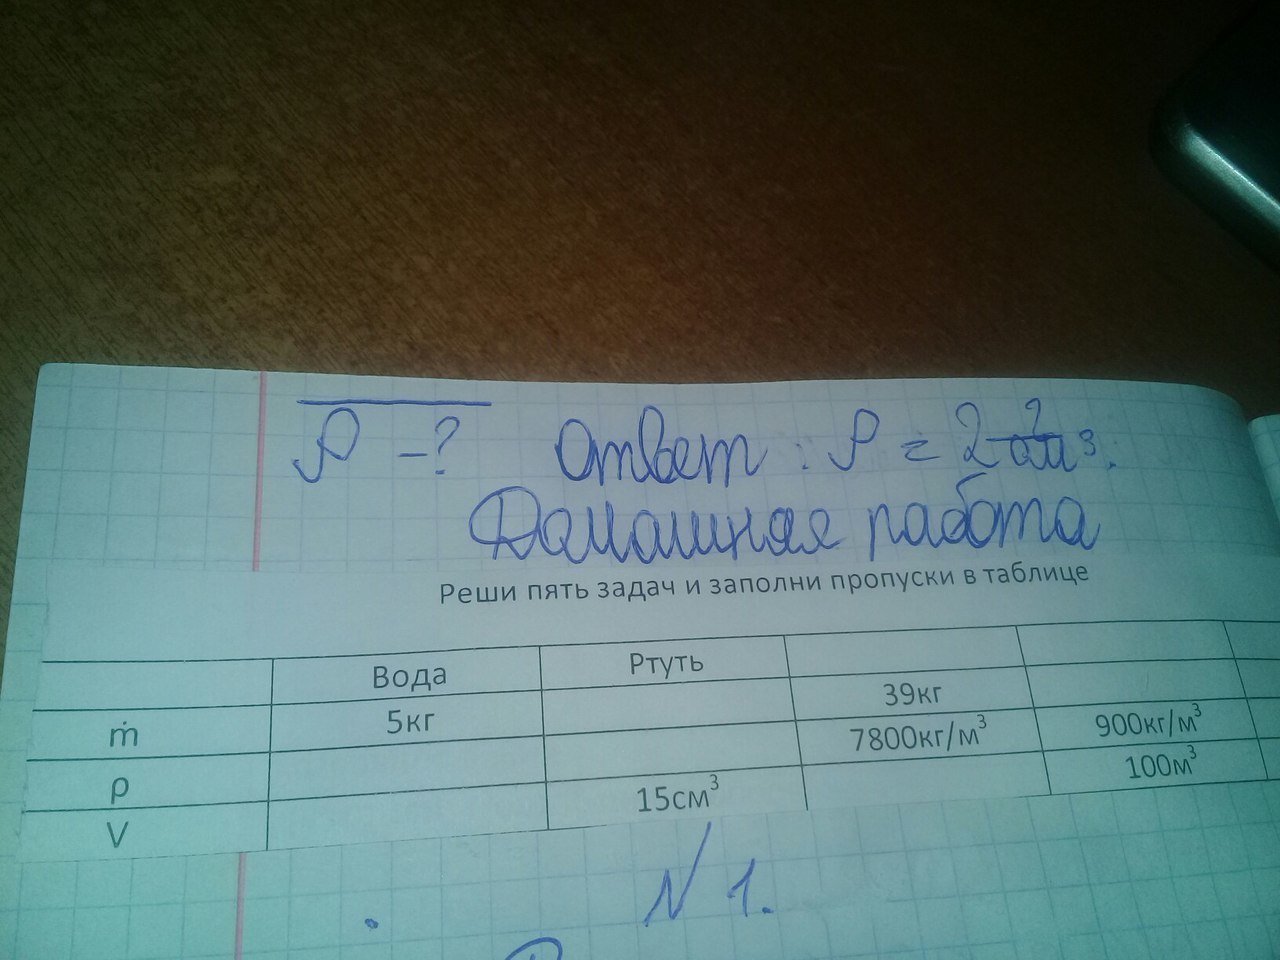 ρ - ? Ответ: ρ = 2 г/см³.
Домашняя работа
Реши пять задач и заполни пропуски в таблице
Вода Ртуть
ṁ 5кг 39кг
ρ 7800кг/м³ 900кг/м³
V 15см³ 100м³
№ 1.